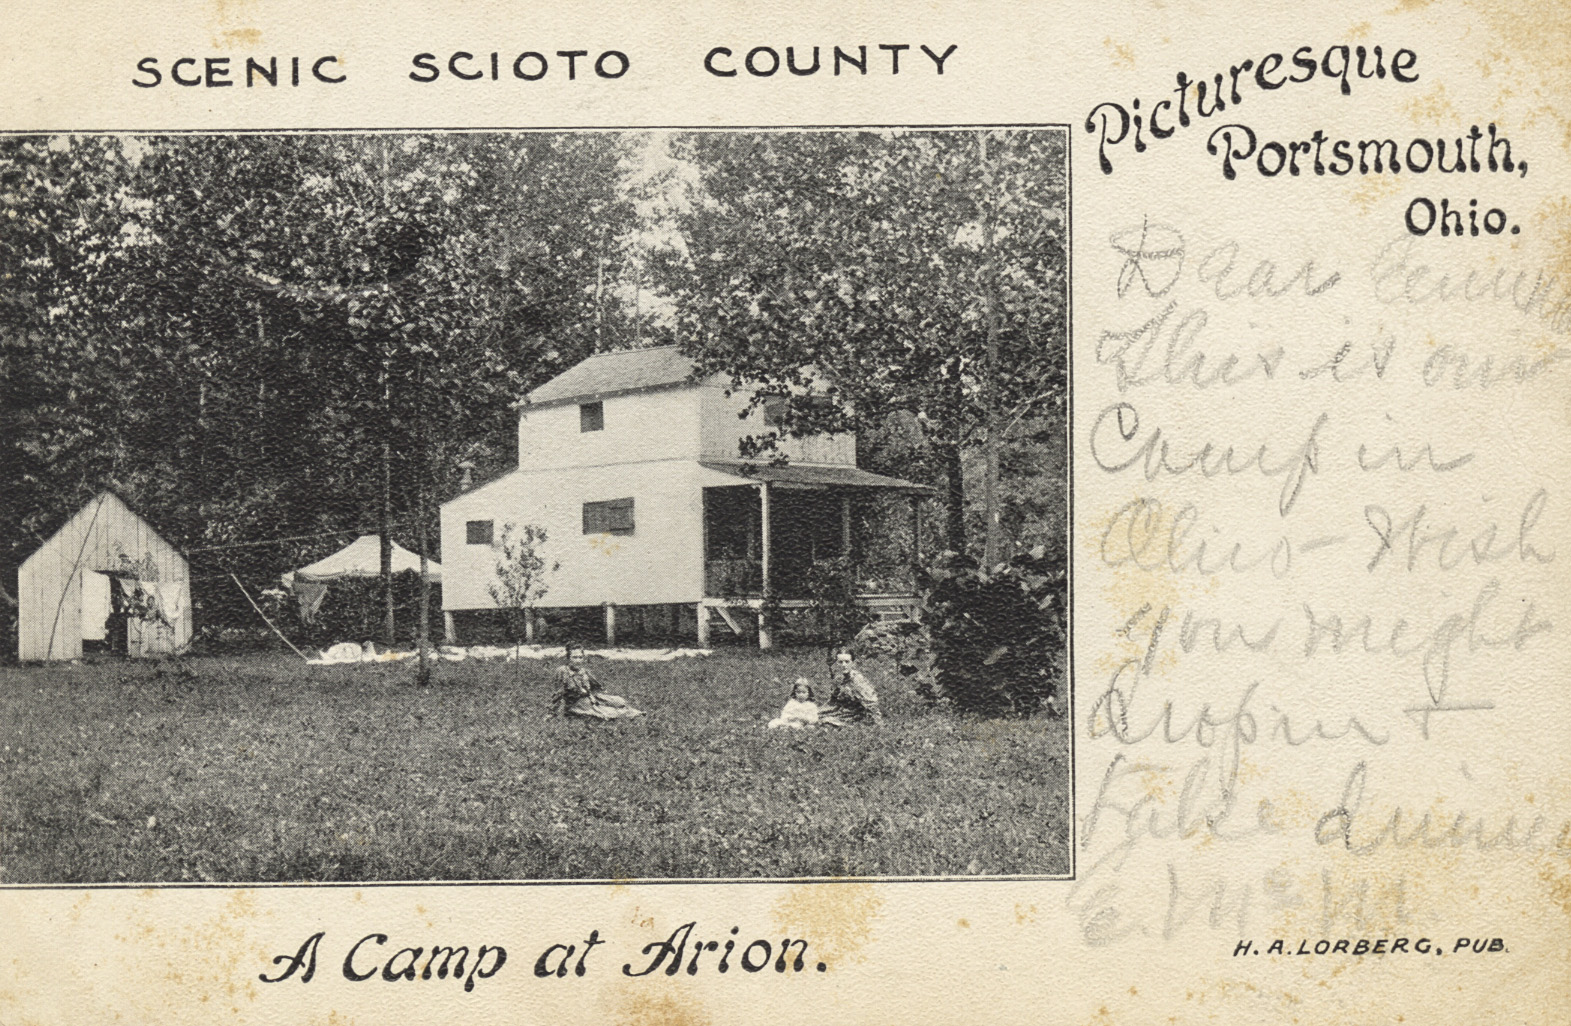 SCENIC SCIOTO COUNTY
Picturesque
Portsmouth,
Ohio.
Dear
This is our
Camp in
Ohio - Wish
you might
drop in +
take dinner
A Camp at Arion.
H. A. LORBERG, PUB.